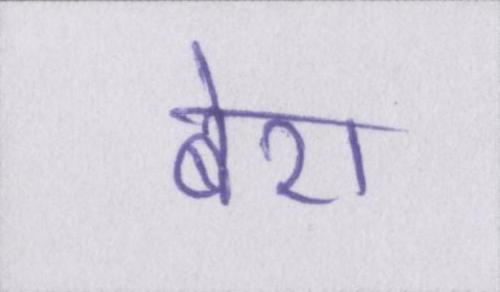 बेरा